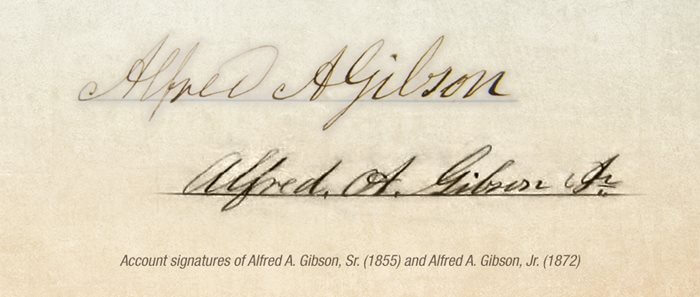 Alfred A Gibson
Alfred. A. Gibson Jr.
Account signatures of Alfred A. Gibson, Sr. (1855) and Alfred A. Gibson, Jr. (1872)